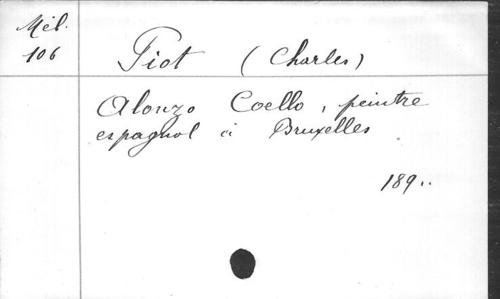 Mél.
106
Piot (Charles)
Alonzo Coello, peintre
espagnol à Bruxelles
189..